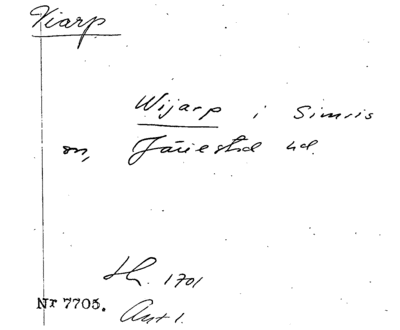 Viarp
Wijarp i Simris
sn, Järrestad hd.
Jb. 1701
Nr 7705. Ant 1.